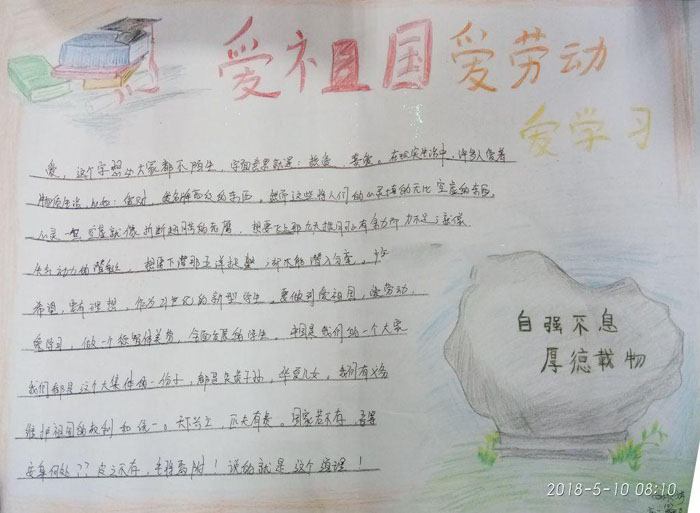 爱祖国 爱劳动
爱学习
爱，这个字想必大家都不陌生，字面意思就是：热爱，喜爱。在现实生活中，许多人爱着
物质生活，比如：爱财，爱名牌西的东西。然而这些将人们的心灵填的无比空虚的东西，
心灵空虚就像折断翅膀的老鹰，想要飞上那九天揽月可心有余力而力不足；就像
失去动力的潜艇，想要下潜那五洋捉鳖，却不能潜入分毫。
希望，要有理想，作为21世纪的新型学生，要做到爱祖国，爱劳动，
爱学习，做一个德智体美劳，全面发展的学生。祖国是我们的一个大家
我们都是这个大集体的一份子，都是炎黄子孙，华夏儿女。我们有义务
维护祖国的权利和统一。天下兴亡，匹夫有责。国家若不存，吾等
要身何处？？皮之不存，毛将焉附！说的就是这个道理！
自强不息
厚德载物
2018-5-10 08:10